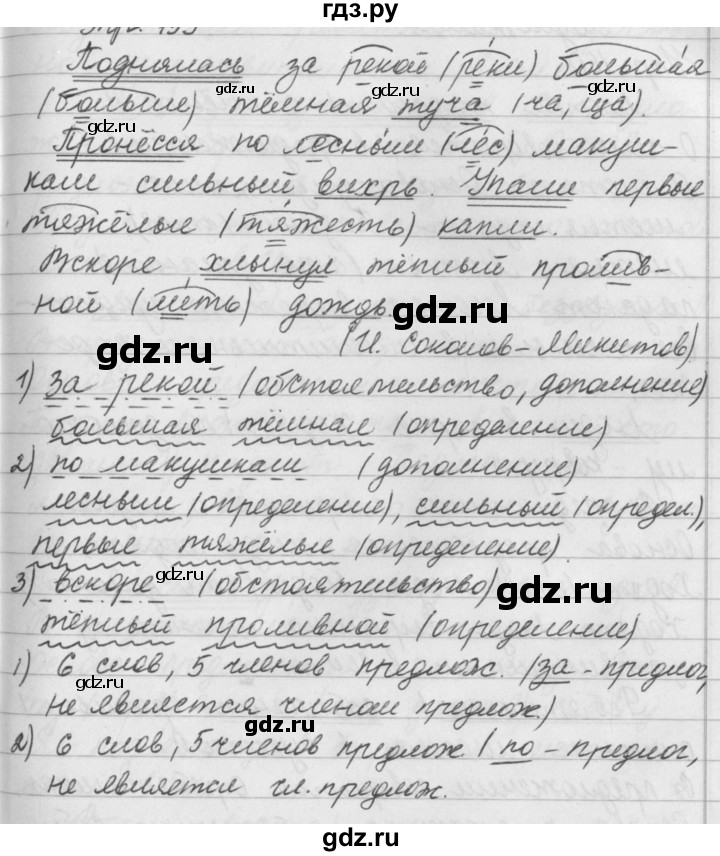 гдз.ру
Поднялась за рекой (реки) большая
gdz.ru gdz.ru
(больше) тёмная туча (ча, ща).
gdz.ru gdz.ru
Пронёсся по лесным (лес) макуш-
кам сильный вихрь. Упали первые
тяжёлые (тяжесть) капли.
Вскоре хлынул тёплый пролив-
ной (лить) дождь.
gdz.ru
gdz.ru
(И. Соколов-Микитов)
1) за рекой (обстоятельство, дополнение)
большая тёмная (определение)
2) по макушкам (дополнение)
лесным (определение), сильный (определ.),
первые тяжёлые (определение)
3) вскоре (обстоятельство)
gdz.ru
gdz.ru
тёплый проливной (определение)
1) 6 слов, 5 членов предлож. (за - предлог,
gdz.ru
не является членом предлож.)
gdz.ru gdz.ru
2) 6 слов, 5 членов предлож. (по - предлог,
не является чл. предлож.
gdz.ru